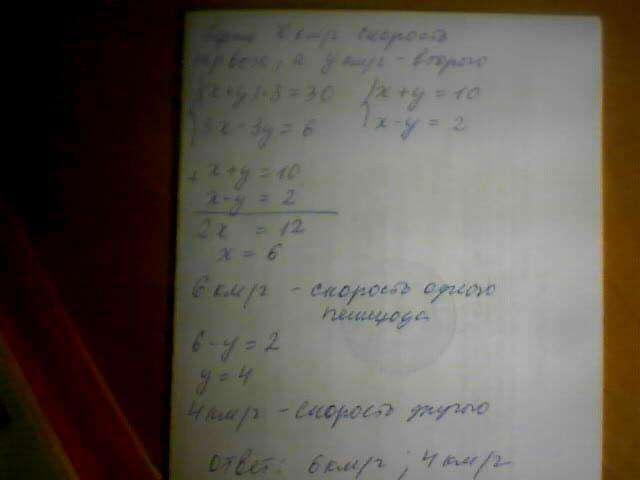 x км/ч скорость
первого, а y км/ч - второго
{(x+y)·3=30 {x+y=10
{3x-3y=6 {x-y=2
+ x+y=10
x-y=2
2x =12
x=6
6 км/ч - скорость одного
пешехода
6-y=2
y=4
4 км/ч - скорость другого
ответ: 6 км/ч; 4 км/ч